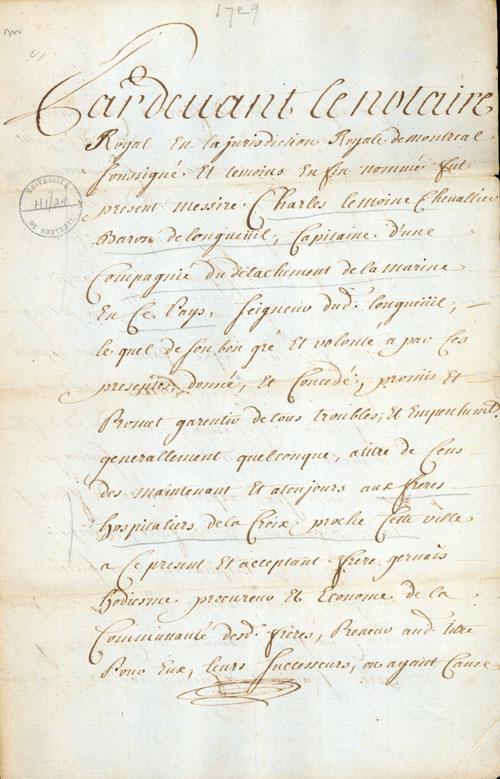 1729
Pardevant le notaire
Royal En la jurisdiction Royale de montreal
soussigné Et temoins En fin nommés fut
present messire Charles lemoine Chevallier
Baron de longueuil, Capitaine d'une
Compagnie du détachement de la marine
En Ce Pays, seigneur dud. longueüil,
le quel de son bon gré et volonté a par Ces
presentes donné, et Concedé, promis Et
Promet garentir de tous troubles, Et Empeschemts.
generallement quelconque, a titre de Cens
des maintenant Et atoujours aux freres
hospitaliers de la Croix proche Cette ville
a Ce present Et acceptant frere gervais
hodiesme procureur Et Econome de la
Communauté desd. freres, Preneur aud. titre
Pour Eux, leurs successeurs, ou ayant Cause
UNIVERSITÉ
H1/24
DE MONTREAL